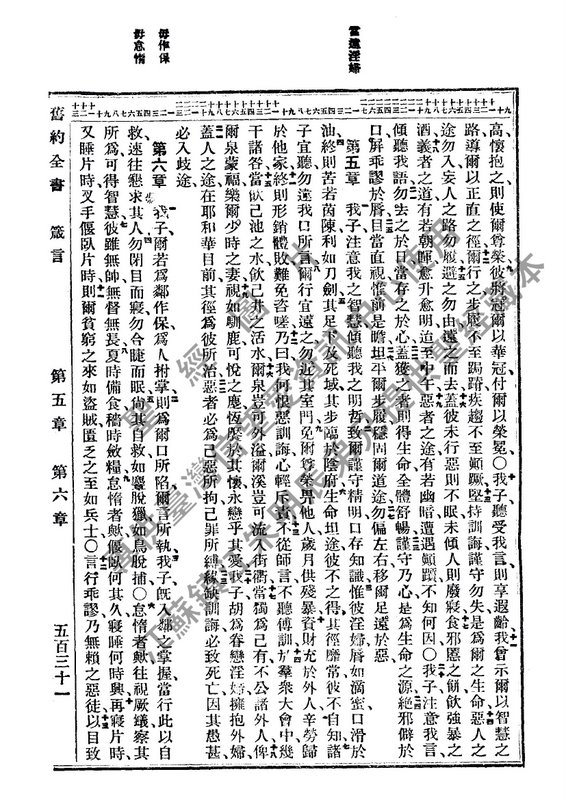 當遠淫婦
毋作保
毋怠惰
高、懷抱之則使爾尊榮、彼將冠爾以華冠、付爾以榮冕、○我子聽受我言、則享遐齡、我曾示爾以智慧之
路、導爾以正直之徑、爾行之、步履不至跼蹐、疾趨不至顚蹶、堅持訓誨、謹守勿失、是爲爾之生命、惡人之
途勿入、妄人之路勿履、避之勿由、遠之而去、蓋彼未行惡則不眠、未傾人則廢寢、食邪慝之餅、飲強暴之
酒、義者之道、有若朝暉、愈升愈明、迨至中午、惡者之途、有若幽暗、遭遇顚躓、不知何因、○我子注意我言、
傾聽我語、勿去之於目、當存之於心、蓋獲之者、則得生命、全體舒暢、謹守乃心、是爲生命之源、絕邪僻於
口、屏乖謬於唇、目當直視、惟前是瞻、坦平爾步履、鞏固爾道途、勿偏左右、移爾足遠於惡、
第五章 我子注意我之智慧、傾聽我之明哲、致爾謹守精明、口存知識、惟彼淫婦、唇如滴蜜、口滑於
油、終則苦若茵蔯、利如刀劍、其足下及死域、其步臨於陰府、生命坦途、彼不之得、其徑靡常、彼不自知、諸
子宜聽、勿違我口所言、爾行宜遠之、勿近其室門、免爾尊榮畀他人、歲月供殘暴、資財充於外人、辛勞歸
於他家、終則形銷體敗、難免咨嗟、乃曰、我何恨惡訓誨、心輕督責、不從師言、不聽傅訓、於羣衆大會中、幾
干諸咎、當飲己池之水、飲己井之活水、爾泉豈可外溢、爾溪豈可流入街衢、當獨爲己有、不公諸外人、俾
爾泉蒙福、樂爾少時之妻、視如馴鹿、可悅之麀、恆慊於其懷、永戀乎其愛、我子、胡爲眷戀淫婦、擁抱外婦、
蓋人之途、在耶和華目前、其徑爲彼所治、惡者必爲己惡所拘、己罪所縛、緣缺訓誨、必致死亡、因其愚甚、
必入歧途、
第六章 我子、爾若爲鄰作保、爲人拊掌、則爲爾口所陷、爾言所執、我子、旣入鄰之掌握、當行此以自
救、速往懇求其人、勿閉目而寢、勿合睫而眠、尚其自救、如麀脫獵、如鳥脫捕、○怠惰者歟、往視厥蟻、察其
所爲、可得智慧、彼雖無帥、無督無長、夏時備食、穡時斂糧、怠惰者歟、偃臥何其久、寢睡何時興、再寢片時、
又睡片時、叉手偃臥片時、則爾貧窮之來如盜賊、匱乏之至如兵士、○言行乖謬、乃無賴之惡徒、以目致
舊約全書 箴言 第五章 第六章 五百三十一